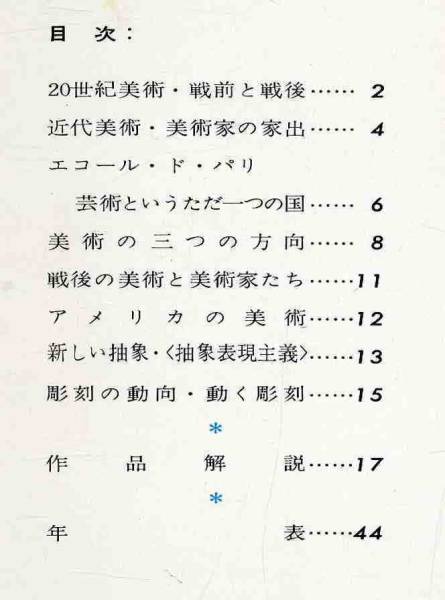 目次：
20世紀美術・戦前と戦後……2
近代美術・美術家の家出……4
エコール・ド・パリ
芸術というただ一つの国……6
美術の三つの方向……8
戦後の美術と美術家たち……11
アメリカの美術……12
新しい抽象・〈抽象表現主義〉……13
彫刻の動向・動く彫刻……15
*
作品解説……17
*
年表……44